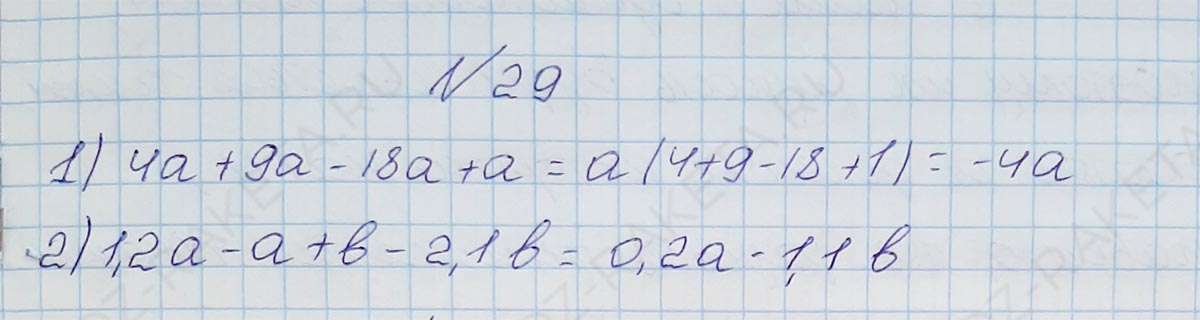 № 29
1) 4a + 9a - 18a + a = a (4+9-18+1) = -4a
2) 1,2a - a + b - 2,1 b = 0,2a - 1,1 b